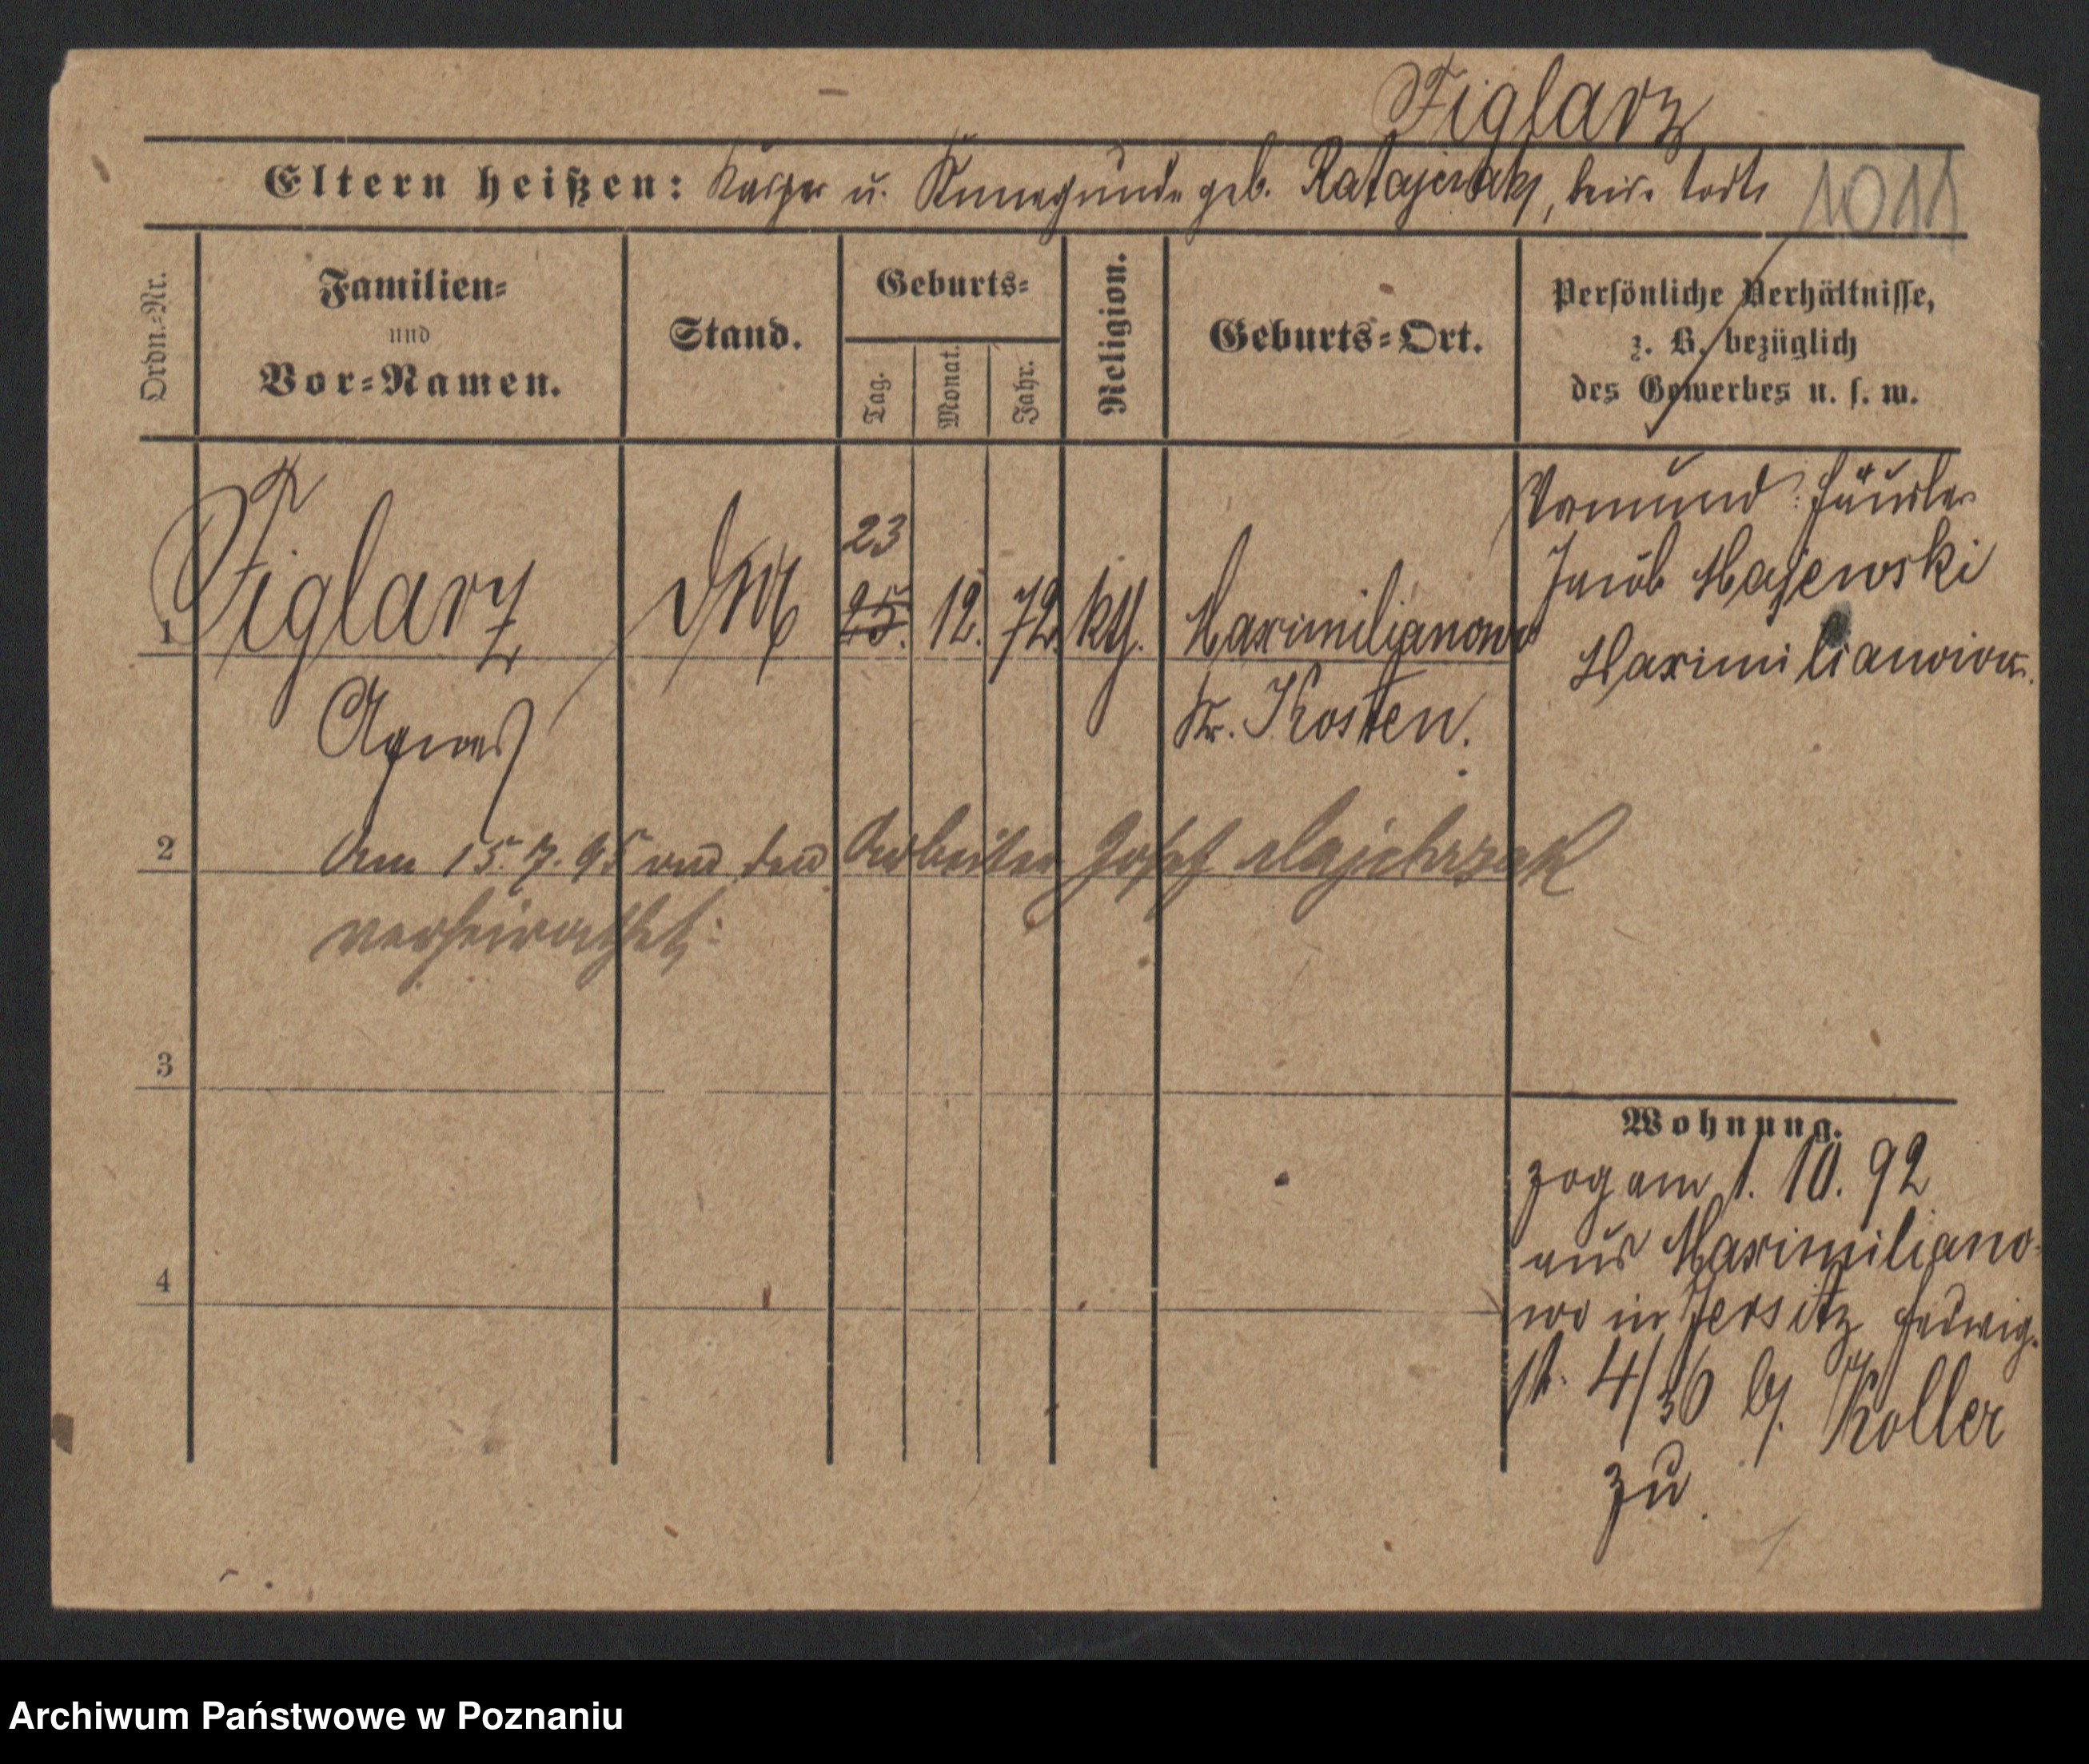 Figlarz
Eltern heißen: Kasper u. Kunegunde geb. Ratajczak, beide todt
1011
Ordn.-Nr.
Familien-
und
Vor-Namen.
Stand.
Geburts-
Tag.
Monat.
Jahr.
Religion.
Geburts-Ort.
Persönliche Verhältnisse,
z. B. bezüglich
des Gewerbes u. s. w.
1
Figlarz
Agnes
23
25. 12. 72. kth.
Maximilianowo
Kr. Kosten.
Vormund: Häusler
Jacob Majewski
Maximilianowo.
2
Am 15.7.95 mit dem Arbeiter Josef Majchrzak
verheirathet.
3
4
Wohnung.
zog am 1. 10. 92
aus Maximiliano-
wo in Jersitz Hedwig-
st. 4/36 b. Koller
zu.
Archiwum Państwowe w Poznaniu